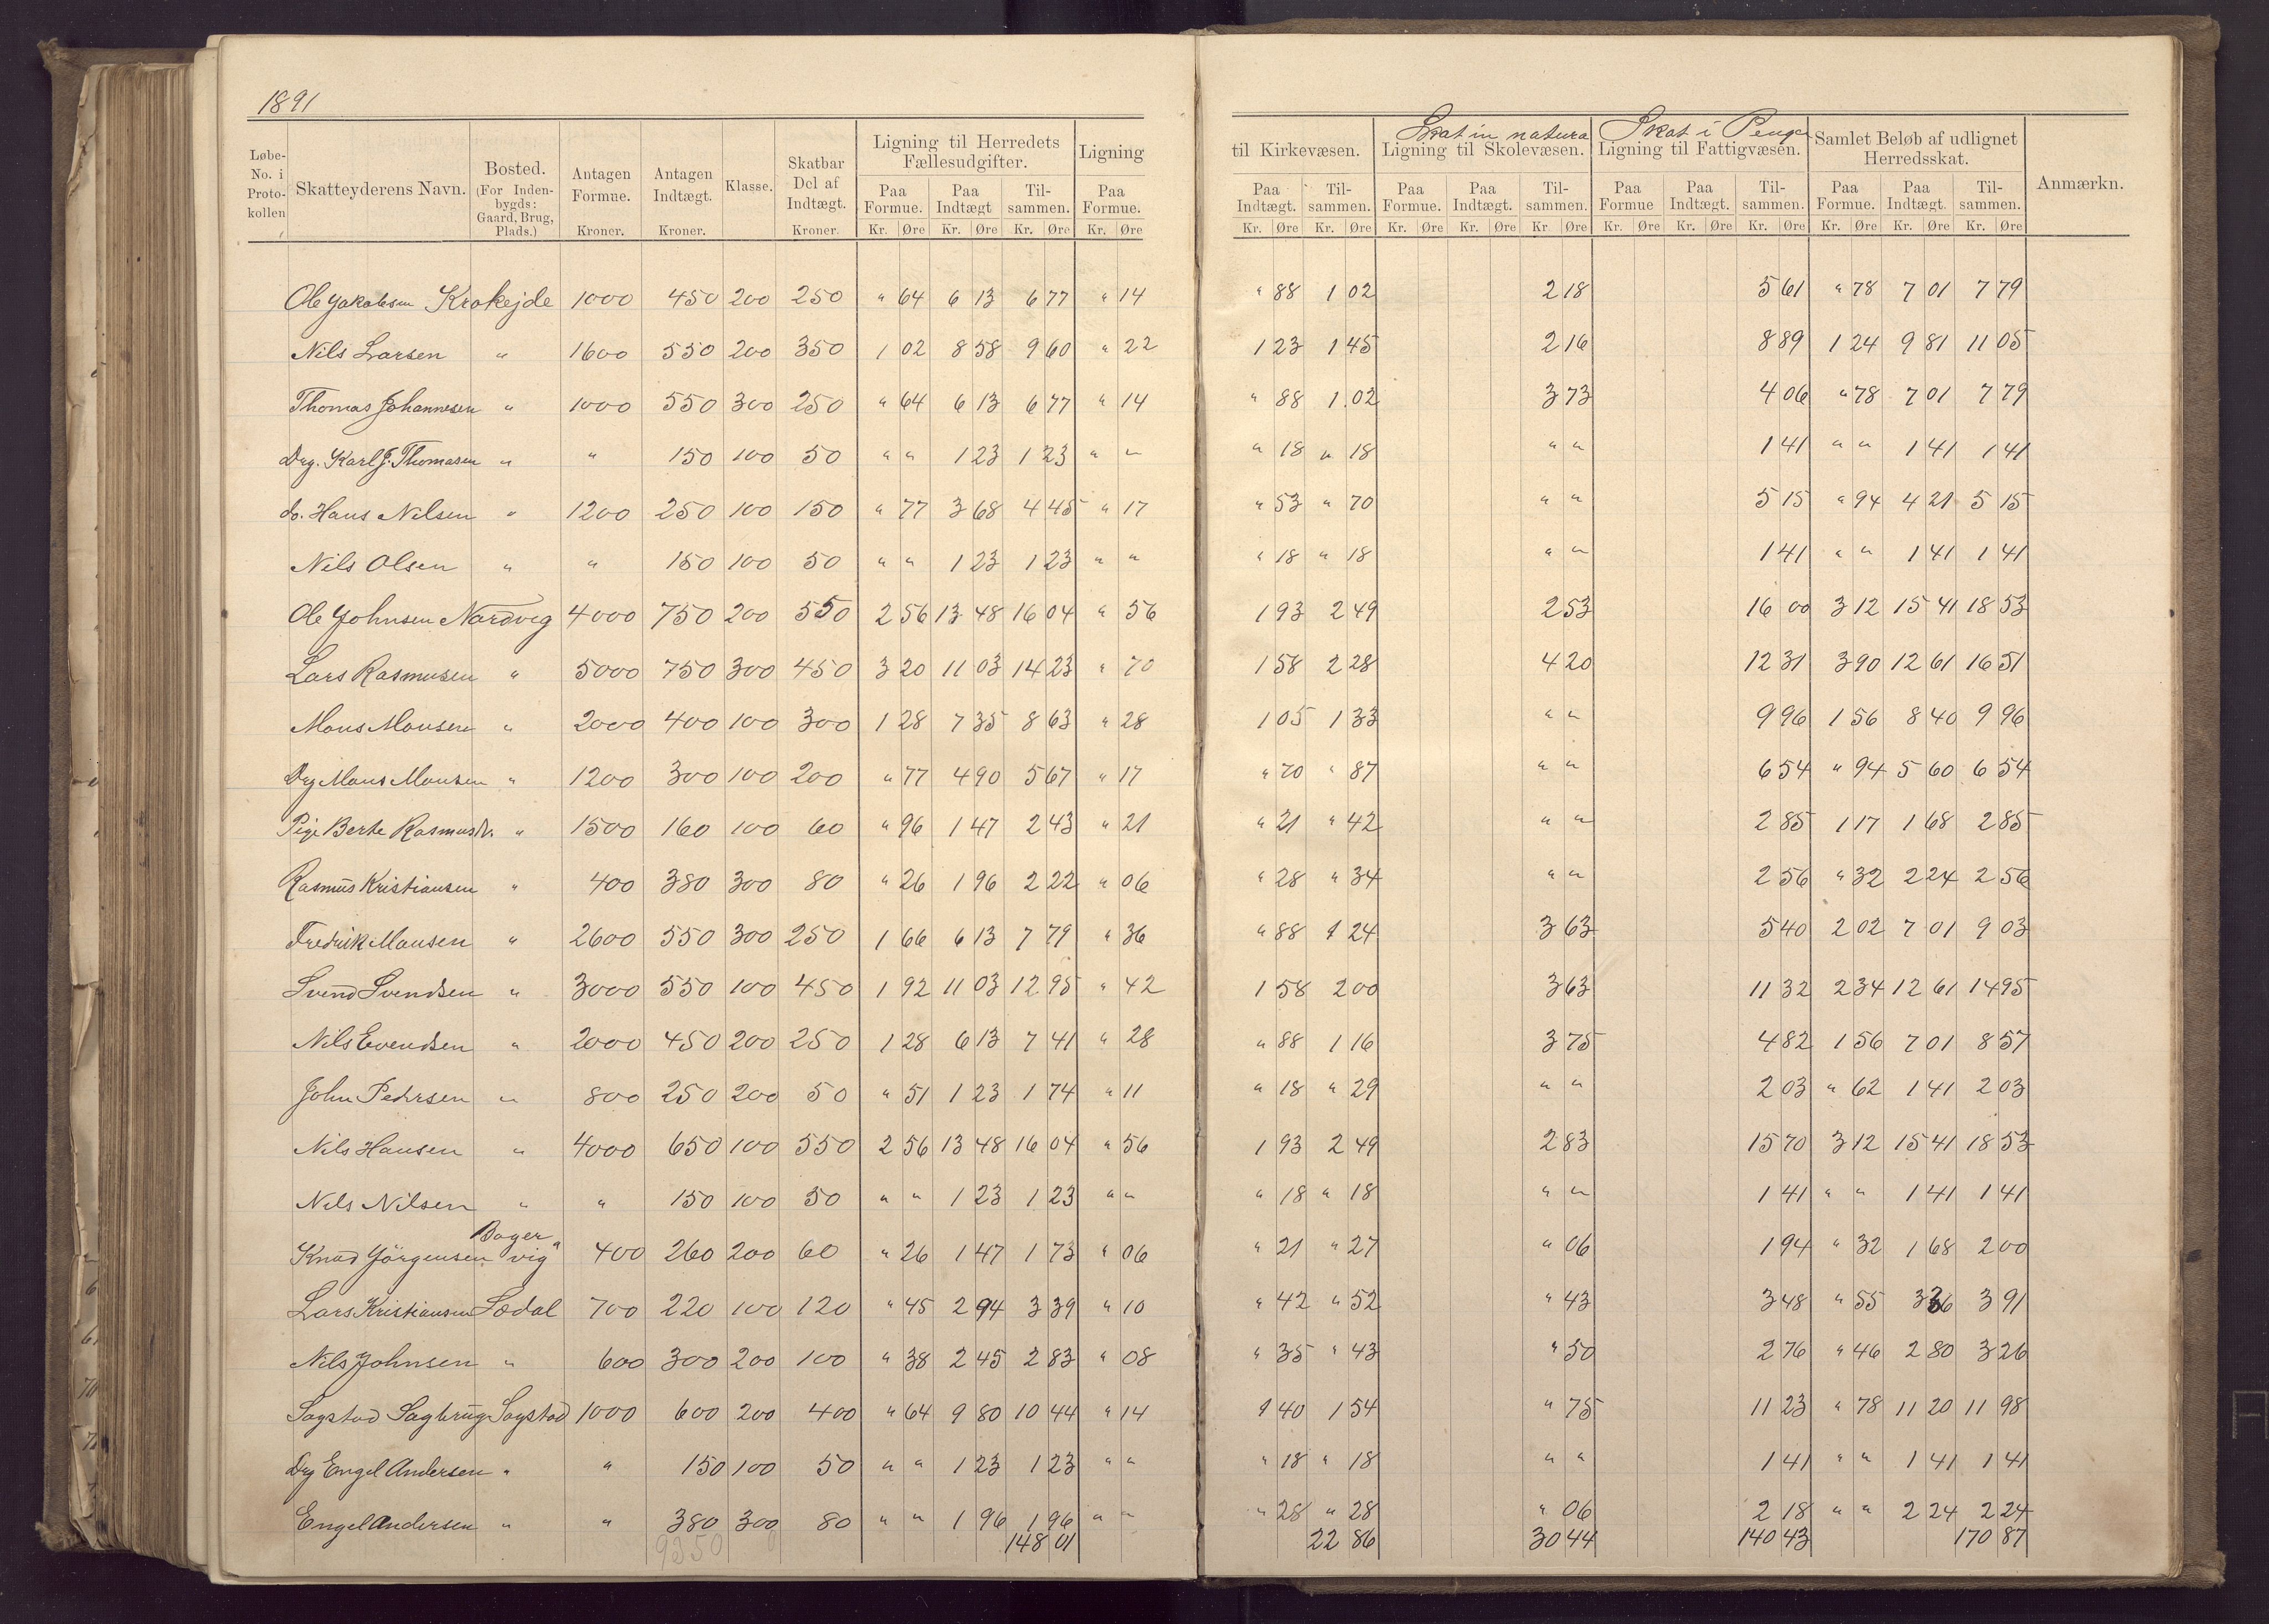 1891
Løbe-No. i Proto-kollen Skatteyderens Navn. Bosted. (For Inden-bygds: Gaard, Brug, Plads.) Antagen Formue. Kroner. Antagen Indtægt. Kroner. Klasse. Skatbar Del af Indtægt. Kroner. Ligning til Herredets Fællesudgifter. Paa Formue. Kr. Øre Paa Indtægt Kr. Øre Til-sammen. Kr. Øre Ligning Paa Formue. Kr. Øre
til Kirkevæsen. Paa Indtægt. Kr. Øre Til-sammen. Kr. Øre Skat in natura Ligning til Skolevæsen. Paa Formue. Kr. Øre Paa Indtægt. Kr. Øre Til-sammen. Kr. Øre Skat i Penge Ligning til Fattigvæsen. Paa Formue Kr. Øre Paa Indtægt. Kr. Øre Til-sammen. Kr. Øre Samlet Beløb af udlignet Herredsskat. Paa Formue. Kr. Øre Paa Indtægt. Kr. Øre Til-sammen. Kr. Øre Anmærkn.
Ole Jakobsen Krokejde 1000 450 200 250 " 64 6 13 6 77 " 14 " 88 1 02 2 18 5 61 " 78 7 01 7 79
Nils Larsen " 1600 550 200 350 1 02 8 58 9 60 " 22 1 23 1 45 2 16 8 89 1 24 9 81 11 05
Thomas Johannesen " 1000 550 300 250 " 64 6 13 6 77 " 14 " 88 1 02 3 73 4 06 " 78 7 01 7 79
Drg. Karl J. Thomasen " " 150 100 50 " " 1 23 1 23 " " " 18 " 18 " " 1 41 " " 1 41 1 41
do. Hans Nilsen " 1200 250 100 150 " 77 3 68 4 45 " 17 " 53 " 70 " " 5 15 " 94 4 21 5 15
Nils Olsen " " 150 100 50 " " 1 23 1 23 " " " 18 " 18 " " 1 41 " " 1 41 1 41
Ole Johnsen Nordvig 4000 750 200 550 2 56 13 48 16 04 " 56 1 93 2 49 2 53 16 00 3 12 15 41 18 53
Lars Rasmusen " 5000 750 300 450 3 20 11 03 14 23 " 70 1 58 2 28 4 20 12 31 3 90 12 61 16 51
Mons Monsen " 2000 400 100 300 1 28 7 35 8 63 " 28 1 05 1 33 " " 9 96 1 56 8 40 9 96
Drg Mons Monsen " 1200 300 100 200 " 77 4 90 5 67 " 17 " 70 " 87 " " 6 54 " 94 5 60 6 54
Pige Berte Rasmusdr. " 1500 160 100 60 " 96 1 47 2 43 " 21 " 21 " 42 " " 2 85 1 17 1 68 2 85
Rasmus Kristiansen " 400 380 300 80 " 26 1 96 2 22 " 06 " 28 " 34 " " 2 56 " 32 2 24 2 56
Fredrik Monsen " 2600 550 300 250 1 66 6 13 7 79 " 36 " 88 1 24 3 63 5 40 2 02 7 01 9 03
Svend Svendsen " 3000 550 100 450 1 92 11 03 12 95 " 42 1 58 2 00 3 63 11 32 2 34 12 61 14 95
Nils Evendsen " 2000 450 200 250 1 28 6 13 7 41 " 28 " 88 1 16 3 75 4 82 1 56 7 01 8 57
John Pedersen " 800 250 200 50 " 51 1 23 1 74 " 11 " 18 " 29 " " 2 03 " 62 1 41 2 03
Nils Hansen " 4000 650 100 550 2 56 13 48 16 04 " 56 1 93 2 49 2 83 15 70 3 12 15 41 18 53
Nils Nilsen " " 150 100 50 " " 1 23 1 23 " " " 18 " 18 " " 1 41 " " 1 41 1 41
Knud Jörgensen Bogervig " 400 260 200 60 " 26 1 47 1 73 " 06 " 21 " 27 " 06 1 94 " 32 1 68 2 00
Lars Kristiansen Sædal 700 220 100 120 " 45 2 94 3 39 " 10 " 42 " 52 " 43 3 48 " 55 3 36 3 91
Nils Johnsen " 600 300 200 100 " 38 2 45 2 83 " 08 " 35 " 43 " 50 2 76 " 46 2 80 3 26
Sagstad Sagbrug Sagstad 1000 600 200 400 " 64 9 80 10 44 " 14 1 40 1 54 " 75 11 23 " 78 11 20 11 98
Drg Engel Andersen " " 150 100 50 " " 1 23 1 23 " " " 18 " 18 " " 1 41 " " 1 41 1 41
Engel Andersen " " 380 300 80 " " 1 96 1 96 " " " 28 " 28 " 06 2 18 " " 2 24 2 24
9350 148 01 22 86 30 44 140 43 170 87